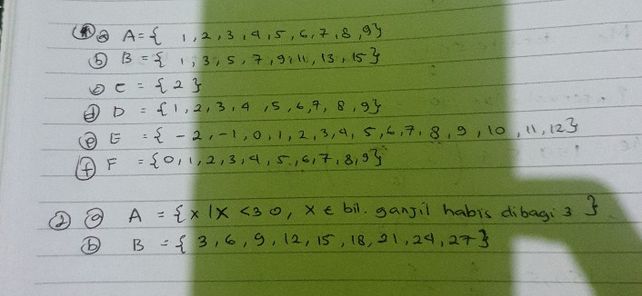 ① ⓐ A = { 1, 2, 3, 4, 5, 6, 7, 8, 9}
ⓑ B = { 1, 3, 5, 7, 9, 11, 13, 15}
ⓒ C = { 2 }
ⓓ D = {1, 2, 3, 4, 5, 6, 7, 8, 9}
ⓔ E = { -2, -1, 0, 1, 2, 3, 4, 5, 6, 7, 8, 9, 10, 11, 12}
ⓕ F = {0, 1, 2, 3, 4, 5, 6, 7, 8, 9}
② ⓐ A = {x | x < 30, x ∈ bil. ganjil habis dibagi 3 }
ⓑ B = { 3, 6, 9, 12, 15, 18, 21, 24, 27}